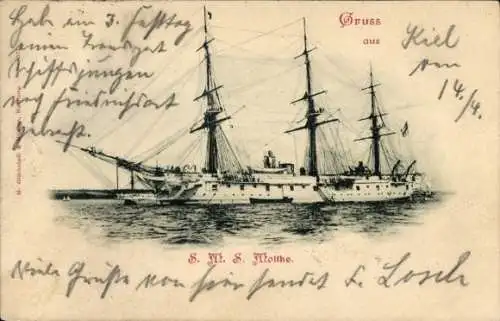 Hab am 3. Festtag
einen Transport
Schiffsjungen
nach Friedrichsort
gebracht.
Gruss
aus
Kiel
vom
14./4.
S. M. S. Moltke.
Viele Grüße von hier sendet E. Losch